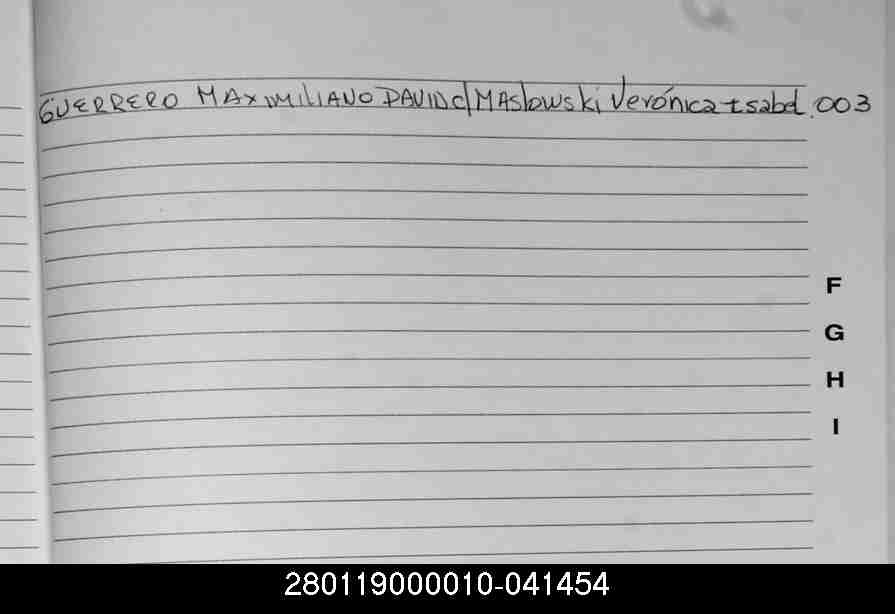 GUERRERO MAXIMILIANO DAVID c/ MASlowski Verónica Isabel. 003
F
G
H
I
280119000010-041454